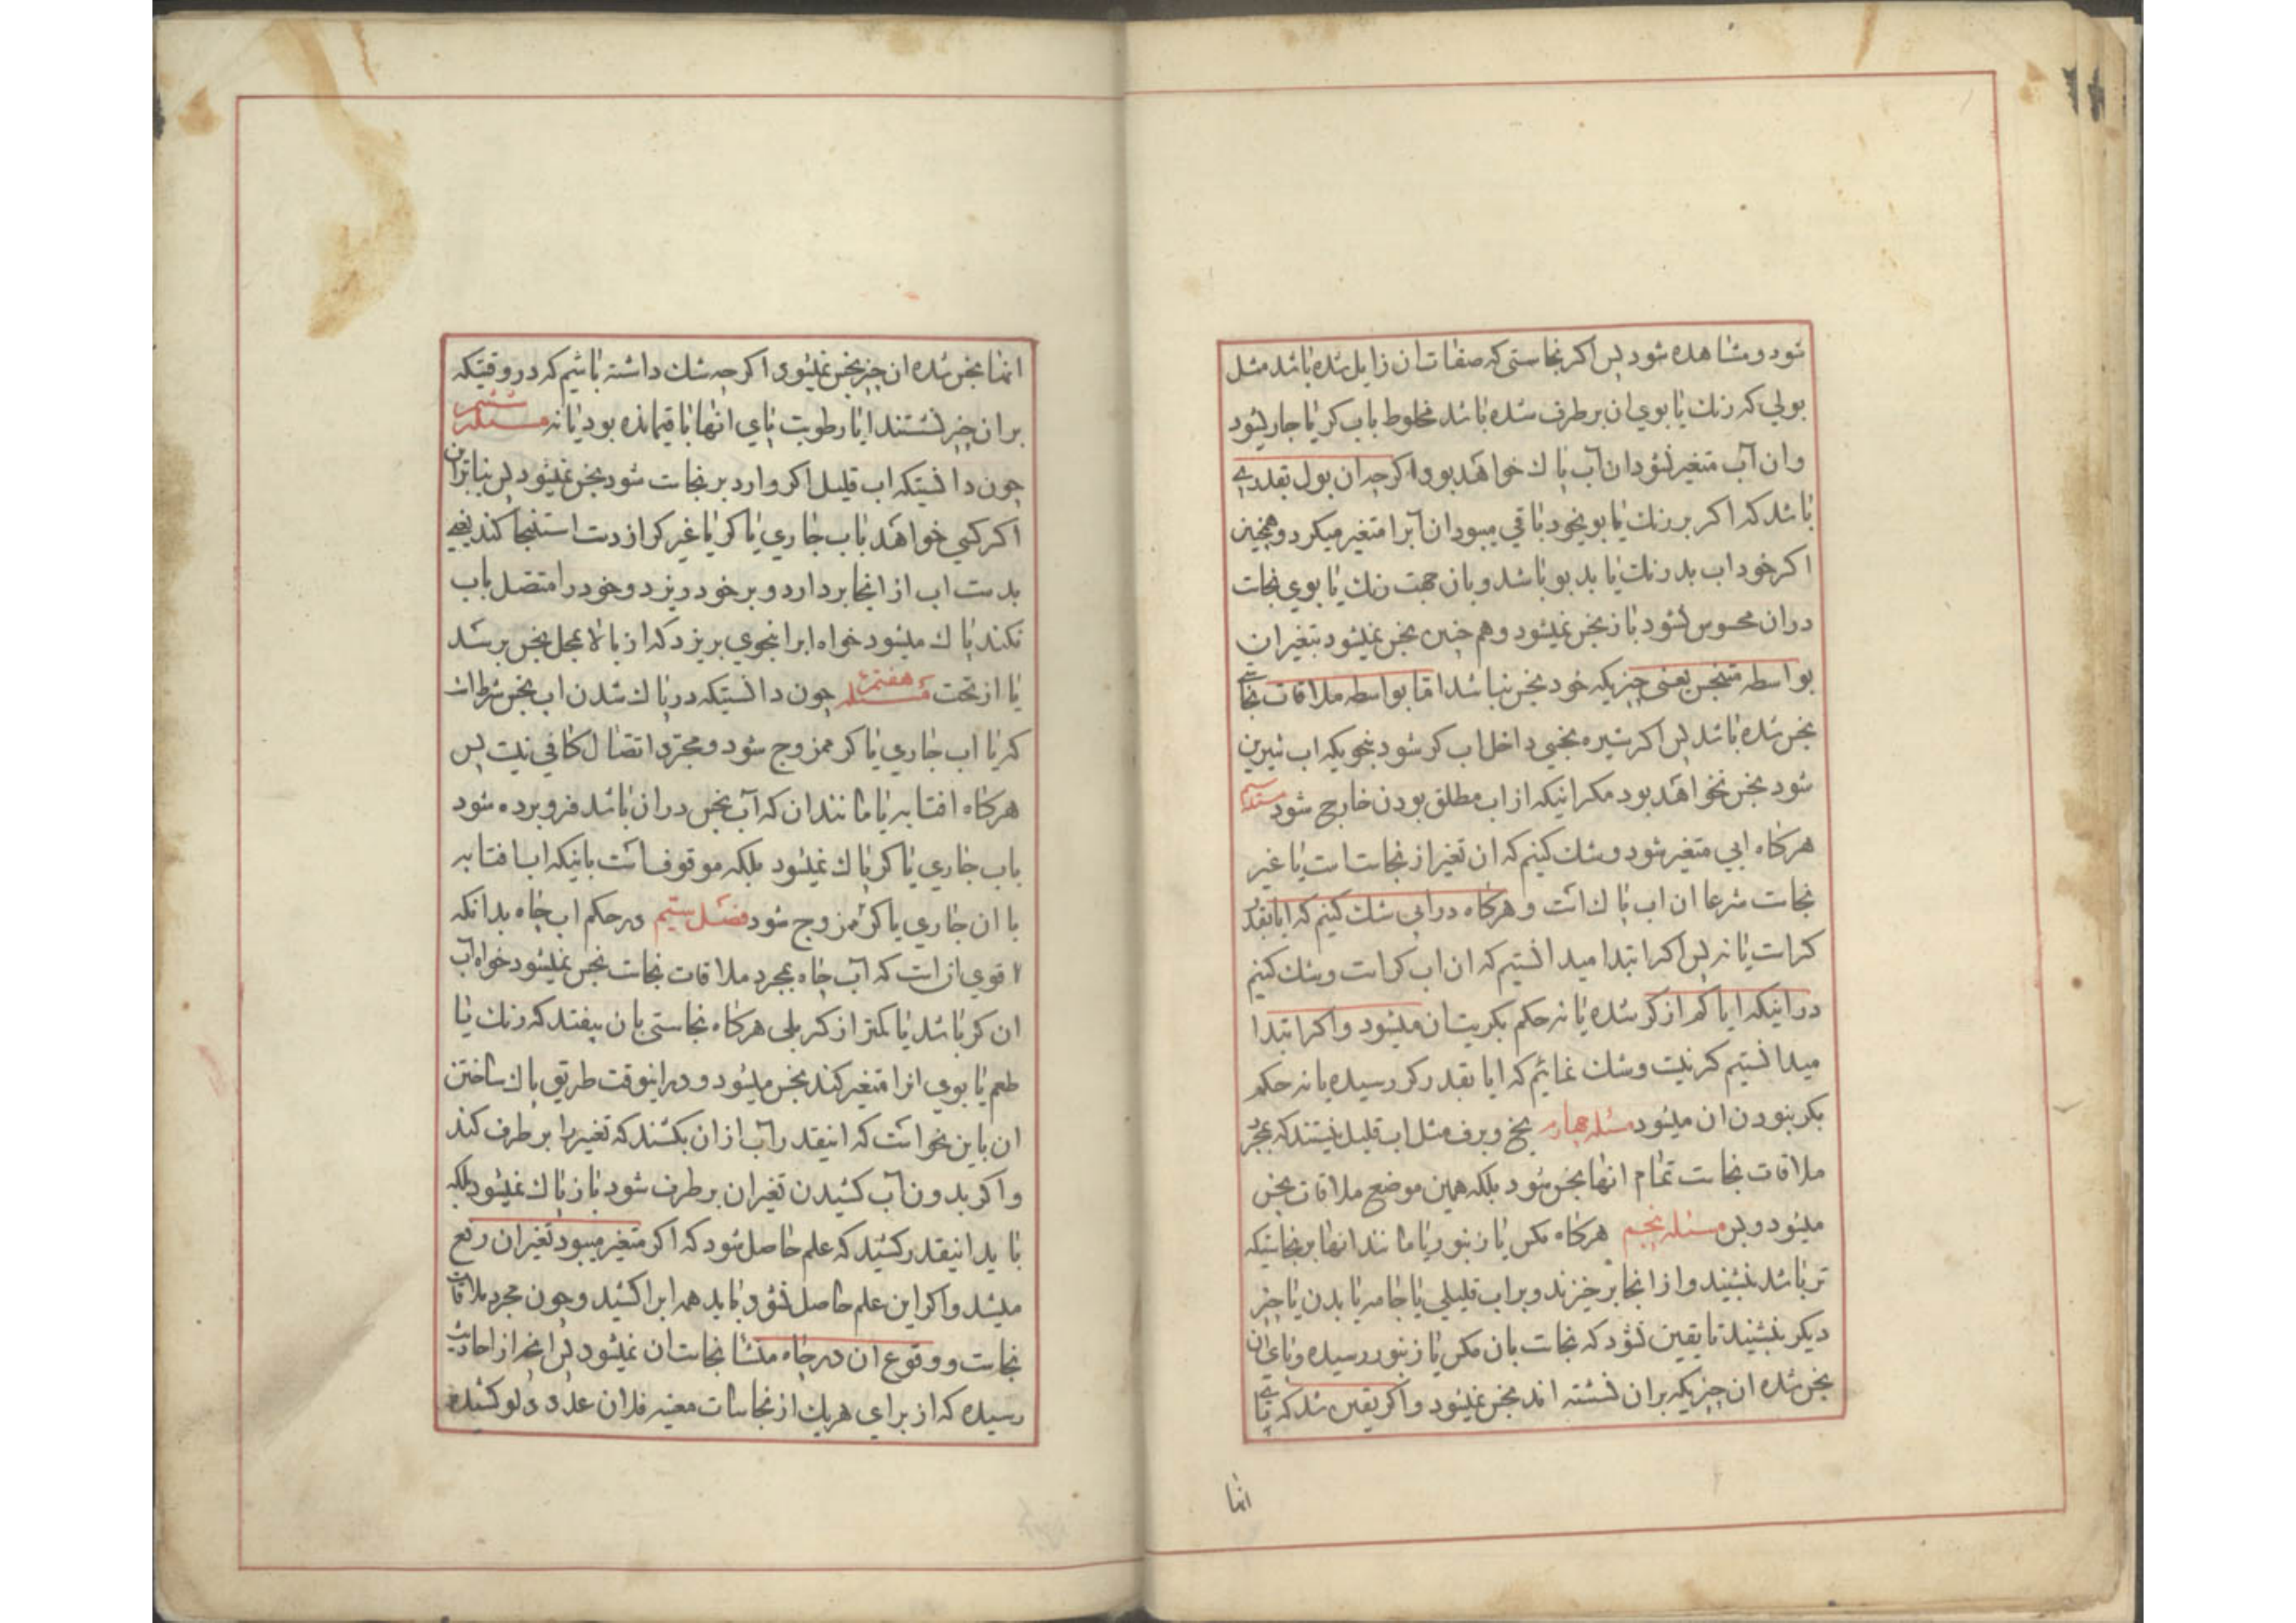 شود و مشاهده شود پس اکر نجاستی که صفات ان زایل شده باشد مثل
بولی که رنك یا بوی ان برطرف شده باشد مخلوط باب کر یا جاری شود
و ان آب متغیر نشود ان آب پاك خواهد بود اکرچه ان بول بقدری
باشد که اکر بر رنك یا بو یخود باقی میبود ان آبرا متغیر میکرد و همچنین
اکر خود اب بد رنك یا بد بو باشد و بان جهت رنك یا بوی نجاست
در ان محسوس نشود باز نجس نمیشود و هم چنین نجس نمیشود بتغیر ان
بواسطه متنجس یعنی چیزیکه خود نجس نباشد اما بواسطه ملاقات نجاستی
نجس شده باشد پس اکر شیره نجسی داخل اب کر شود بنحویکه اب شیرین
شود نجس نخواهد بود مکر انیکه از اب مطلق بودن خارج شود
هرکاه ابی متغیر شود و شك کنیم که ان تغیر از نجاست است یا غیر
نجاست شرعا ان اب پاك است و هرکاه در ابی شك کنیم که ایا بقدر
کر است یا نه پس اکر ابتدا میدانستیم که ان اب کر است و شك کنیم
در اینکه ایا کم از کر شده یا نه حکم بکریت ان میشود و اکر ابتدا
میدانستیم کر نیست و شك نمائیم که ایا بقدر کر رسیده یا نه حکم
بکر نبودن ان میشود مسئله چهارم یخ و برف مثل اب قلیل نیستند که بمجرد
ملاقات نجاست تمام انها نجس شود بلکه همین موضع ملاقات نجس
میشود و بس مسئله پنجم هرکاه مکس یا زنبور یا مانند انها بر نجاستیکه
تر باشد بنشیند و از انجا برخیزند و بر اب قلیلی یا جامه یا بدن یا چیز
دیکر بنشیند تا یقین نشود که نجاست بان مکس یا زنبور رسیده و پای ان
نجس شده ان چیزیکه بران نشسته اند نجس نمیشود و اکر یقین شد که پای
انها
انها نجس شده ان چیز نجس نمیشود اکرچه شك داشته باشیم که در وقتیکه
بر ان چیز نشستند ایا رطوبت پای انها باقیمانده بود یا نه مسئله ششم
چون دانستیکه اب قلیل اکر وارد بر نجاست شود نجس نمیشود پس بنابران
اکر کسی خواهد باب جاری یا کر یا غیر کر از دست استنجا کند یعنی
بدست اب از انجا بردارد و بر خود ریزد و خود را متصل باب
نکند پاك میشود خواه ابرا بنحوی بریزد که از بالا بمحل نجس برسد
یا از تحت مسئله هفتم چون دانستیکه در پاك شدن اب نجس شرط است
که با اب جاری یا کر ممزوج شود و مجرد اتصال کافی نیست پس
هرکاه افتابه یا مانند ان که آب نجس در ان باشد فرو برده شود
باب جاری یا کر پاك نمیشود بلکه موقوفست بانیکه اب افتابه
با ان جاری یا کر ممزوج شود فصل سیم در حکم اب چاه بدانکه
اقوی انست که آب چاه بمجرد ملاقات نجاست نجس نمیشود خواه آب
ان کر باشد یا کمتر از کر بلی هرکاه نجاستی بان بیفتد که رنك یا
طعم یا بوی انرا متغیر کند نجس میشود و در اینوقت طریق پاك ساختن
ان باین نحو است که اینقدر آب از ان بکشند که تغییر را برطرف کند
و اکر بدون آب کشیدن تغیر ان برطرف شود باز پاك نمیشود بلکه
باید اینقدر کشید که علم حاصل شود که اکر متغیر میبود تغیر ان رفع
میشد و اکر این علم حاصل نشود باید همه ابرا کشید و چون مجرد ملاقات
نجاست و وقوع ان در چاه منشا نجاست ان نمیشود پس انچه از احادیث
رسیده که از برای هریك از نجاسات معینه فلان عدد دلو کشیده